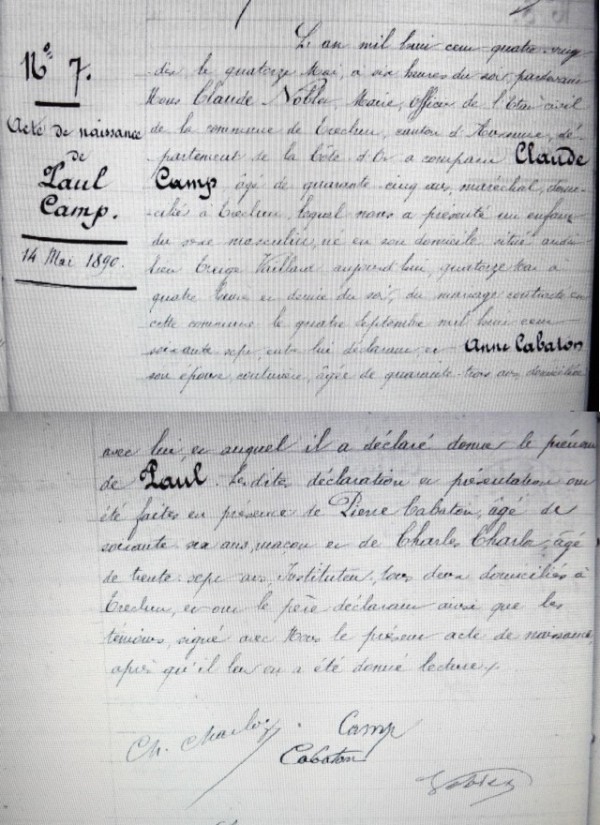 N° 7.
Acte de naissance
de
Paul
Camp.
14 Mai 1890.
L'an mil huit cent quatre-vingt
dix le quatorze Mai, à six heures du soir, pardevant
Nous Claude Maire, Officier de l'Etat civil
de la commune de Ecechen, canton d' dé-
partement de la Côte d'Or a comparu Claude
Camp, âgé de quarante cinq ans, maréchal, domi-
cilié à lequel nous a présenté un enfant
du sexe masculin, né en son domicile situé audit
lieu aujourd'hui, quatorze Mai à
quatre heures et demie du soir, du mariage contracté en
cette commune le quatre Septembre mil huit cent
soixante sept, entre lui déclarant, et Anne Cabaton
son épouse couturière, âgée de quarante-trois ans domiciliée
avec lui, et auquel il a déclaré donner le prénom
de Paul. Les dites déclaration et présentation ont
été faites en présence de Pierre Cabaton, âgé de
soixante six ans, maçon et de Charles Charlot, âgé
de trente-sept ans, Instituteur, tous deux domiciliés à
et ont le père déclarant ainsi que les
témoins, signé avec Nous le présent acte de naissance,
après qu'il leur en a été donné lecture.
Ch. Charlot Camp
Cabaton